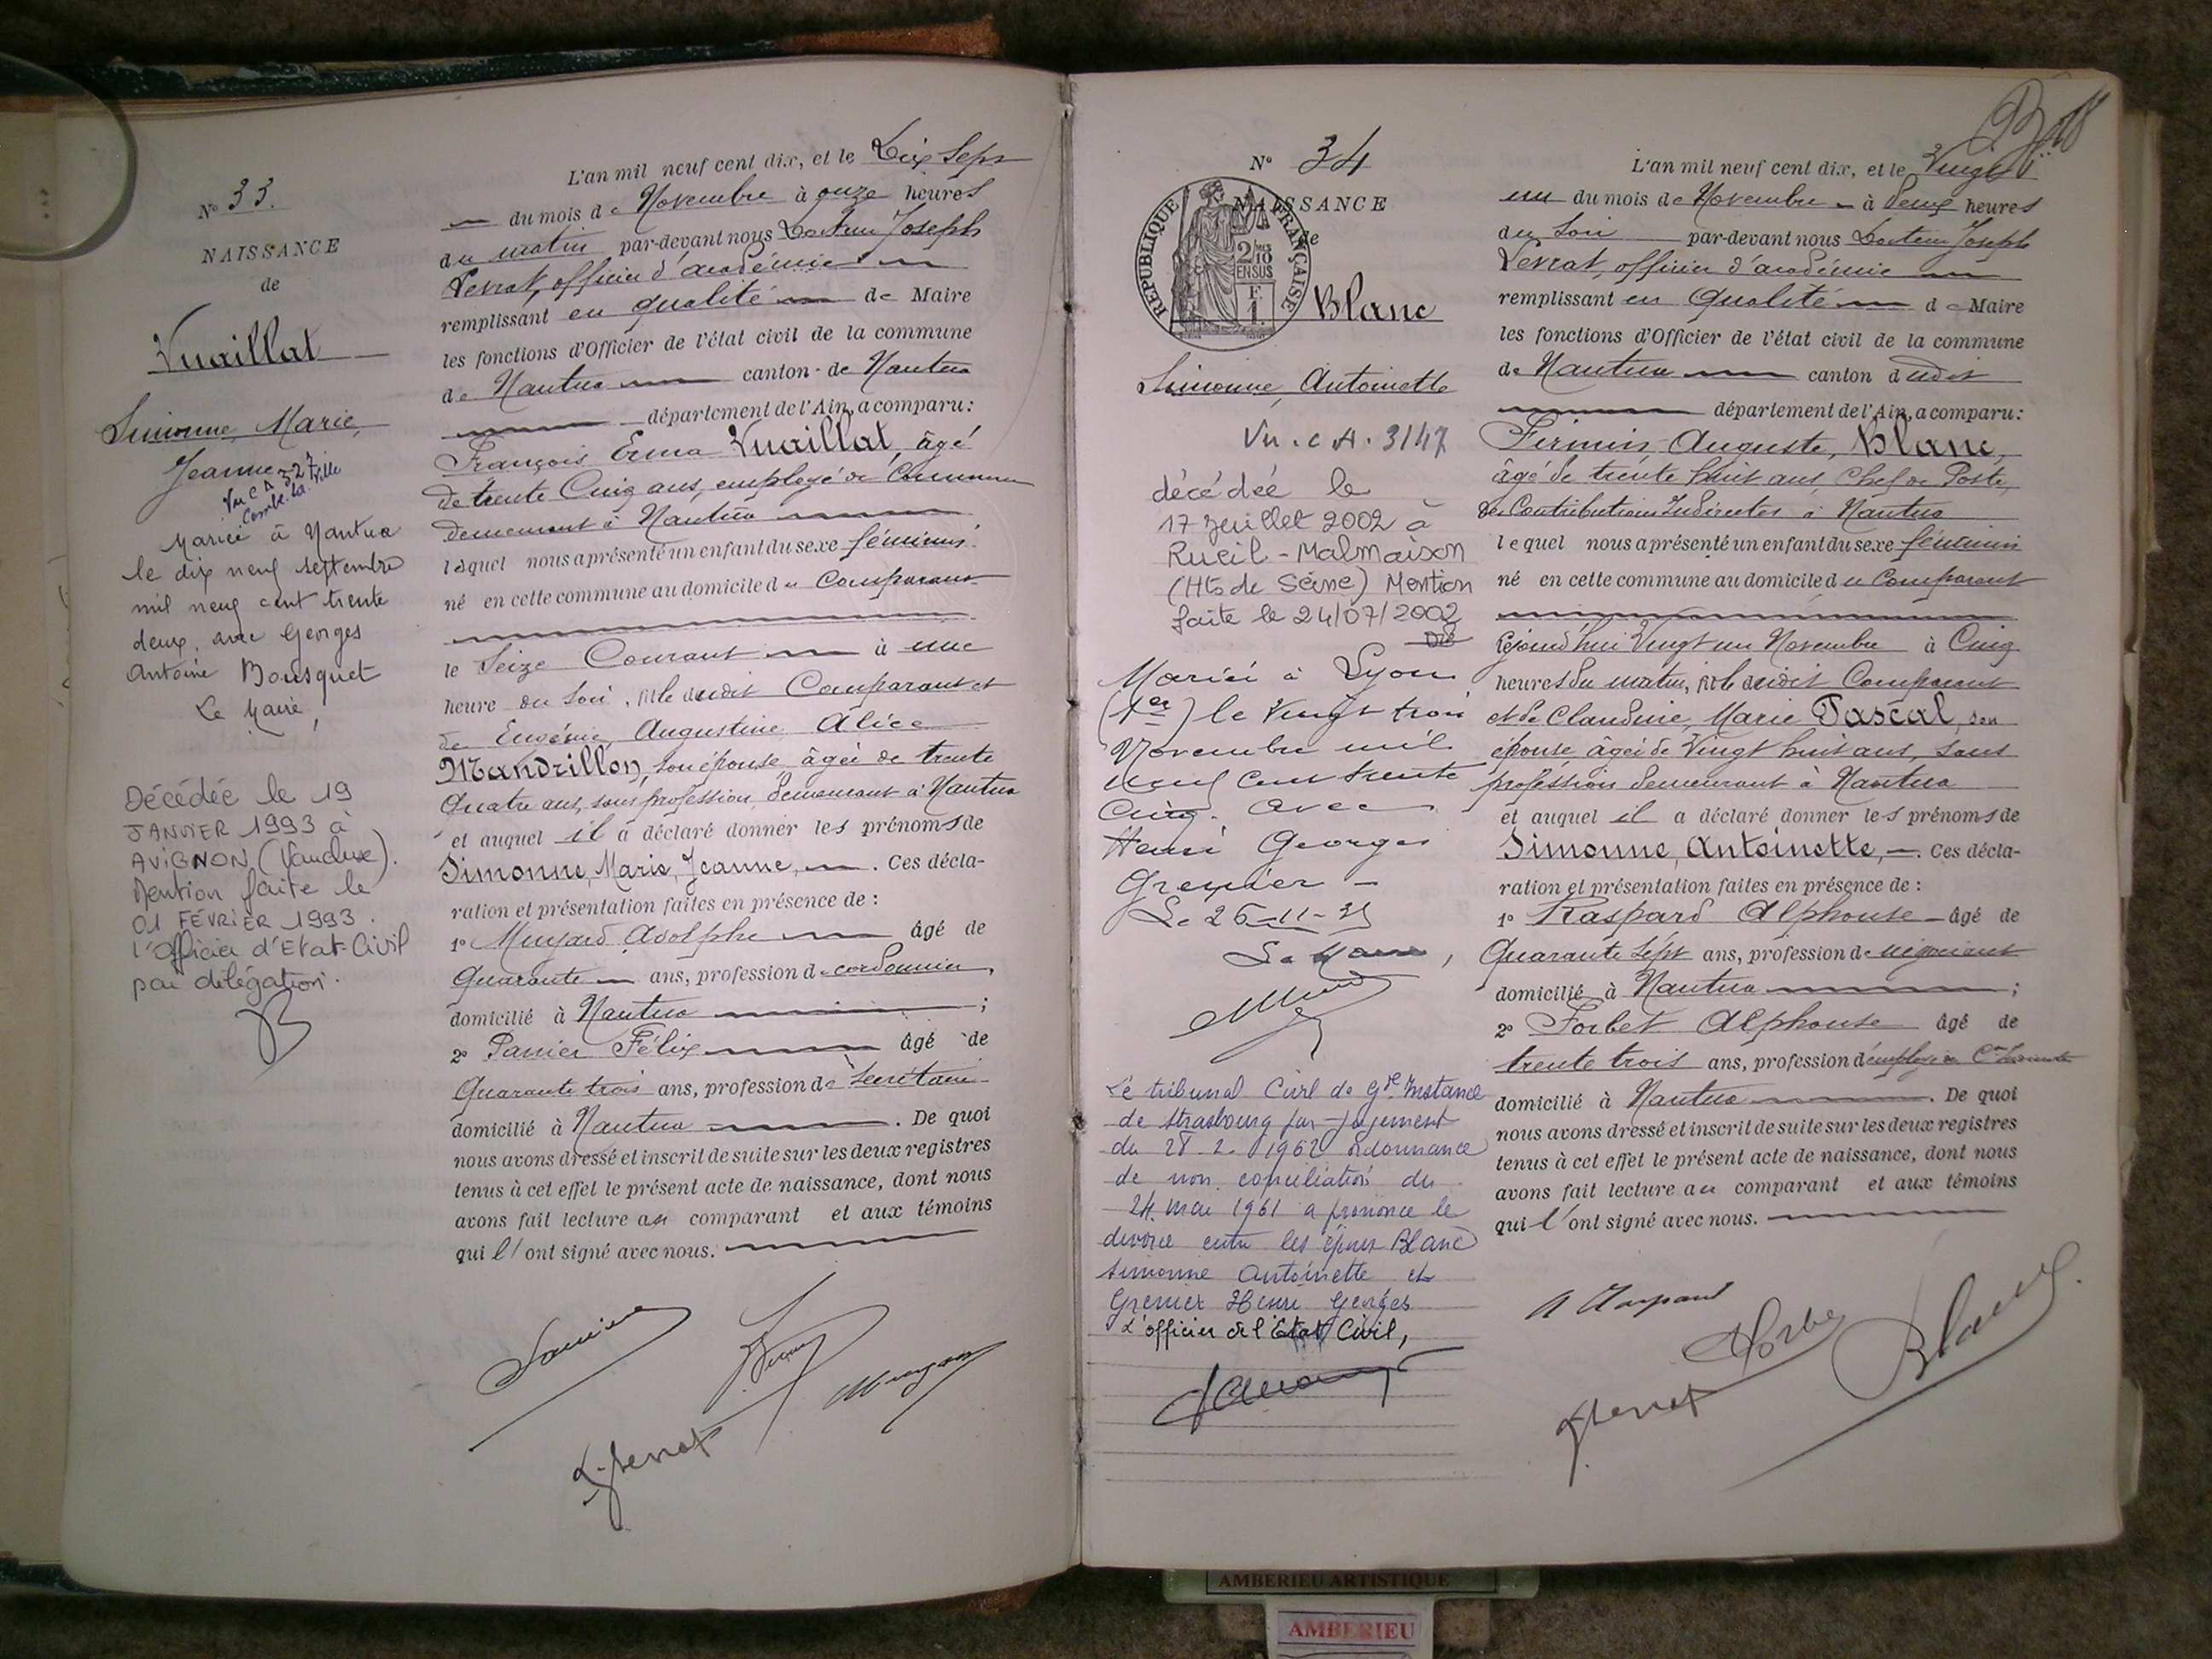 N° 33.
NAISSANCE
de
Vuaillat
Simonne, Marie,
Jeanne
Vu C A 327
Combe. la. Ville
Mariée à Nantua
le dix neuf septembre
mil neuf cent trente
deux, avec Georges
Antoine Bousquet
Le Maire,
Décédée le 19
JANVIER 1993 à
AVIGNON (Vaucluse).
Mention faite le
01 FÉVRIER 1993.
l'Officier d'Etat-Civil
par délégation.
L'an mil neuf cent dix, et le Dix Sept
du mois de Novembre à onze heures
du matin par-devant nous Docteur Joseph
Levrat, officier d'académie
remplissant en qualité de Maire
les fonctions d'Officier de l'état civil de la commune
de Nantua canton de Nantua
département de l'Ain, a comparu:
François Vuaillat, âgé
de trente Cinq ans, employé de Commerce
demeurant à Nantua
lequel nous a présenté un enfant du sexe féminin
né en cette commune au domicile du Comparant
le Seize Courant à une
heure du soir, fille dudit Comparant et
de Eugénie Augustine Alice
Mandrillon, son épouse âgée de trente
Quatre ans, sans profession, demeurant à Nantua
et auquel il a déclaré donner les prénoms de
Simonne, Marie, Jeanne, . Ces décla-
ration et présentation faites en présence de :
1° Adolphe âgé de
Quarante ans, profession de cordonnier,
domicilié à Nantua ;
2° Panier Félix âgé de
Quarante trois ans, profession de Secrétaire
domicilié à Nantua . De quoi
nous avons dressé et inscrit de suite sur les deux registres
tenus à cet effet le présent acte de naissance, dont nous
avons fait lecture au comparant et aux témoins
qui l'ont signé avec nous.
N° 34
NAISSANCE
de
REPUBLIQUE FRANÇAISE
2/10 EN SUS
Blanc
Simonne, Antoinette
Vu. C A. 3147
décédée le
17 juillet 2002 à
Rueil-Malmaison
(Hts de Seine) Mention
faite le 24/07/2002
Mariée à Lyon
(1er) le Vingt trois
Novembre mil
neuf cent trente
cinq. avec
Henri Georges
Grenier -
Le Maire,
Le tribunal Civil de Gde Instance
de Strasbourg par jugement
du 28.2.1962 ordonnance
de non conciliation du
24 mai 1961 a prononcé le
divorce entre les époux Blanc
Simonne Antoinette et
Grenier Henri Georges
L'officier de l'Etat Civil,
L'an mil neuf cent dix, et le Vingt
un du mois de Novembre à deux heures
du Soir par-devant nous Docteur Joseph
Levrat, officier d'académie
remplissant en Qualité de Maire
les fonctions d'Officier de l'état civil de la commune
de Nantua canton dudit
département de l'Ain, a comparu:
Firmin Auguste, Blanc,
âgé de trente huit ans, Chef de Poste
des Contributions Indirectes à Nantua
lequel nous a présenté un enfant du sexe féminin
né en cette commune au domicile du Comparant
cejourd'hui Vingt un Novembre à Cinq
heures du matin, fille dudit Comparant
et de Claudine, Marie Pascal, son
épouse, âgée de Vingt huit ans, sans
profession demeurant à Nantua
et auquel il a déclaré donner les prénoms de
Simonne, Antoinette, . Ces décla-
ration et présentation faites en présence de :
1° Alphonse âgé de
Quarante Sept ans, profession de négociant
domicilié à Nantua ;
2° Forbet Alphonse âgé de
trente trois ans, profession d'employé
domicilié à Nantua . De quoi
nous avons dressé et inscrit de suite sur les deux registres
tenus à cet effet le présent acte de naissance, dont nous
avons fait lecture au comparant et aux témoins
qui l'ont signé avec nous.
Blanc
AMBERIEU ARTISTIQUE
AMBERIEU